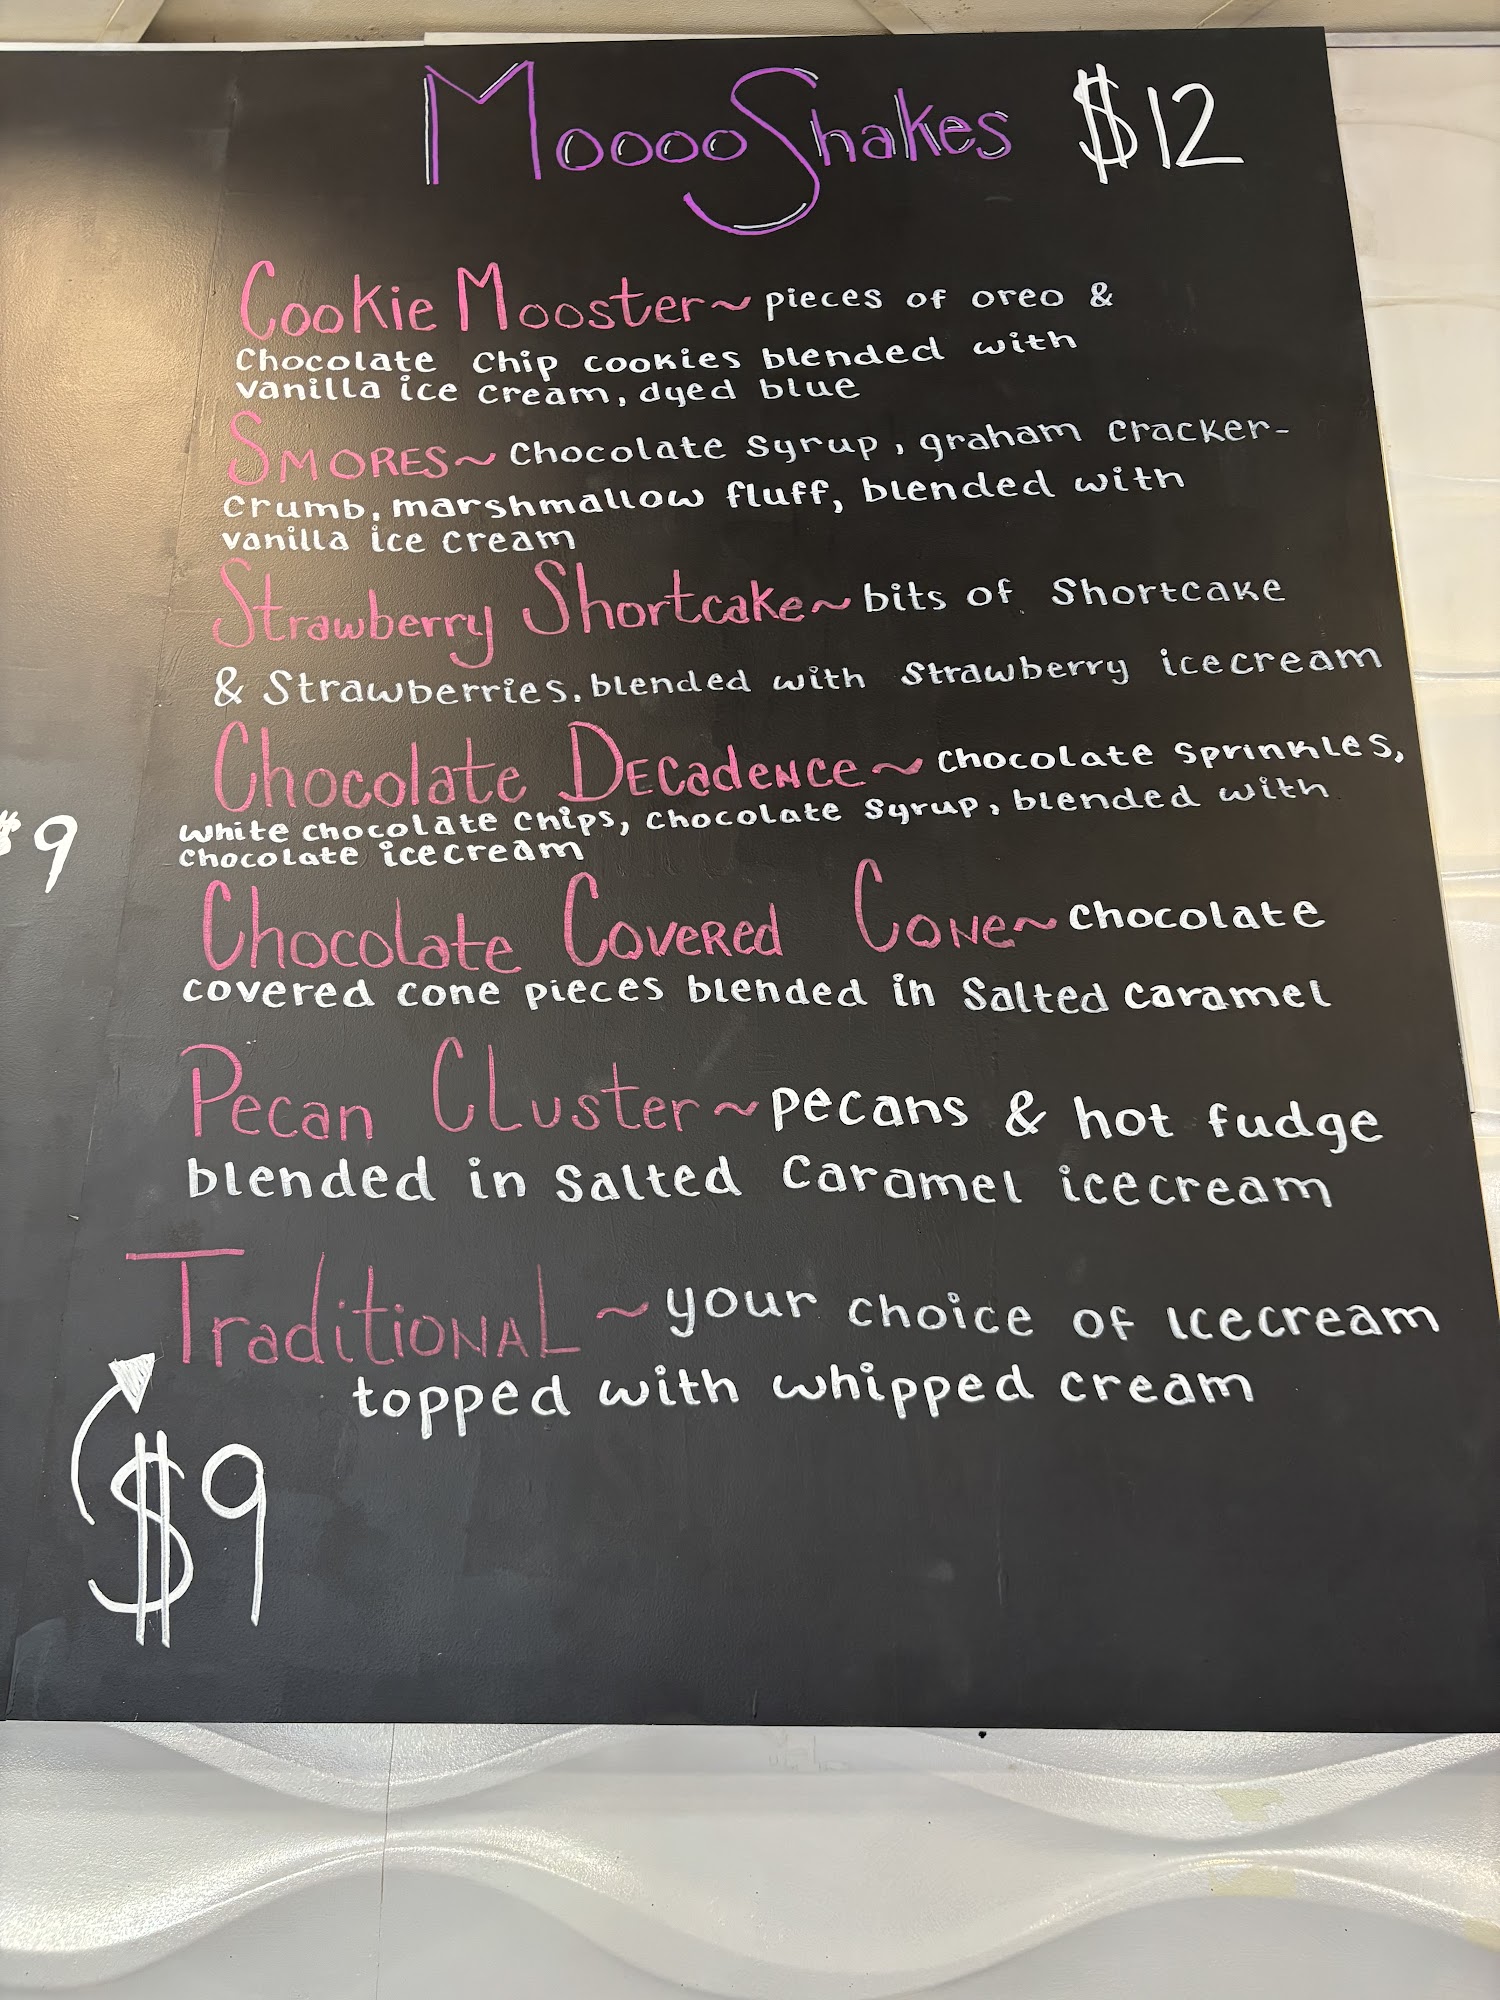 MooooShakes $12
Cookie Mooster~ pieces of oreo &
Chocolate Chip cookies blended with
vanilla ice cream, dyed blue
SMORES~ Chocolate Syrup, graham cracker-
crumb, marshmallow fluff, blended with
vanilla ice cream
Strawberry Shortcake~ bits of Shortcake
& Strawberries, blended with Strawberry icecream
Chocolate Decadence~ Chocolate Sprinkles,
white chocolate chips, chocolate syrup, blended with
chocolate icecream
$9
Chocolate Covered Cone~ Chocolate
covered cone pieces blended in Salted Caramel
Pecan Cluster~ pecans & hot fudge
blended in Salted Caramel icecream
Traditional ~ your choice of Icecream
topped with whipped cream
$9